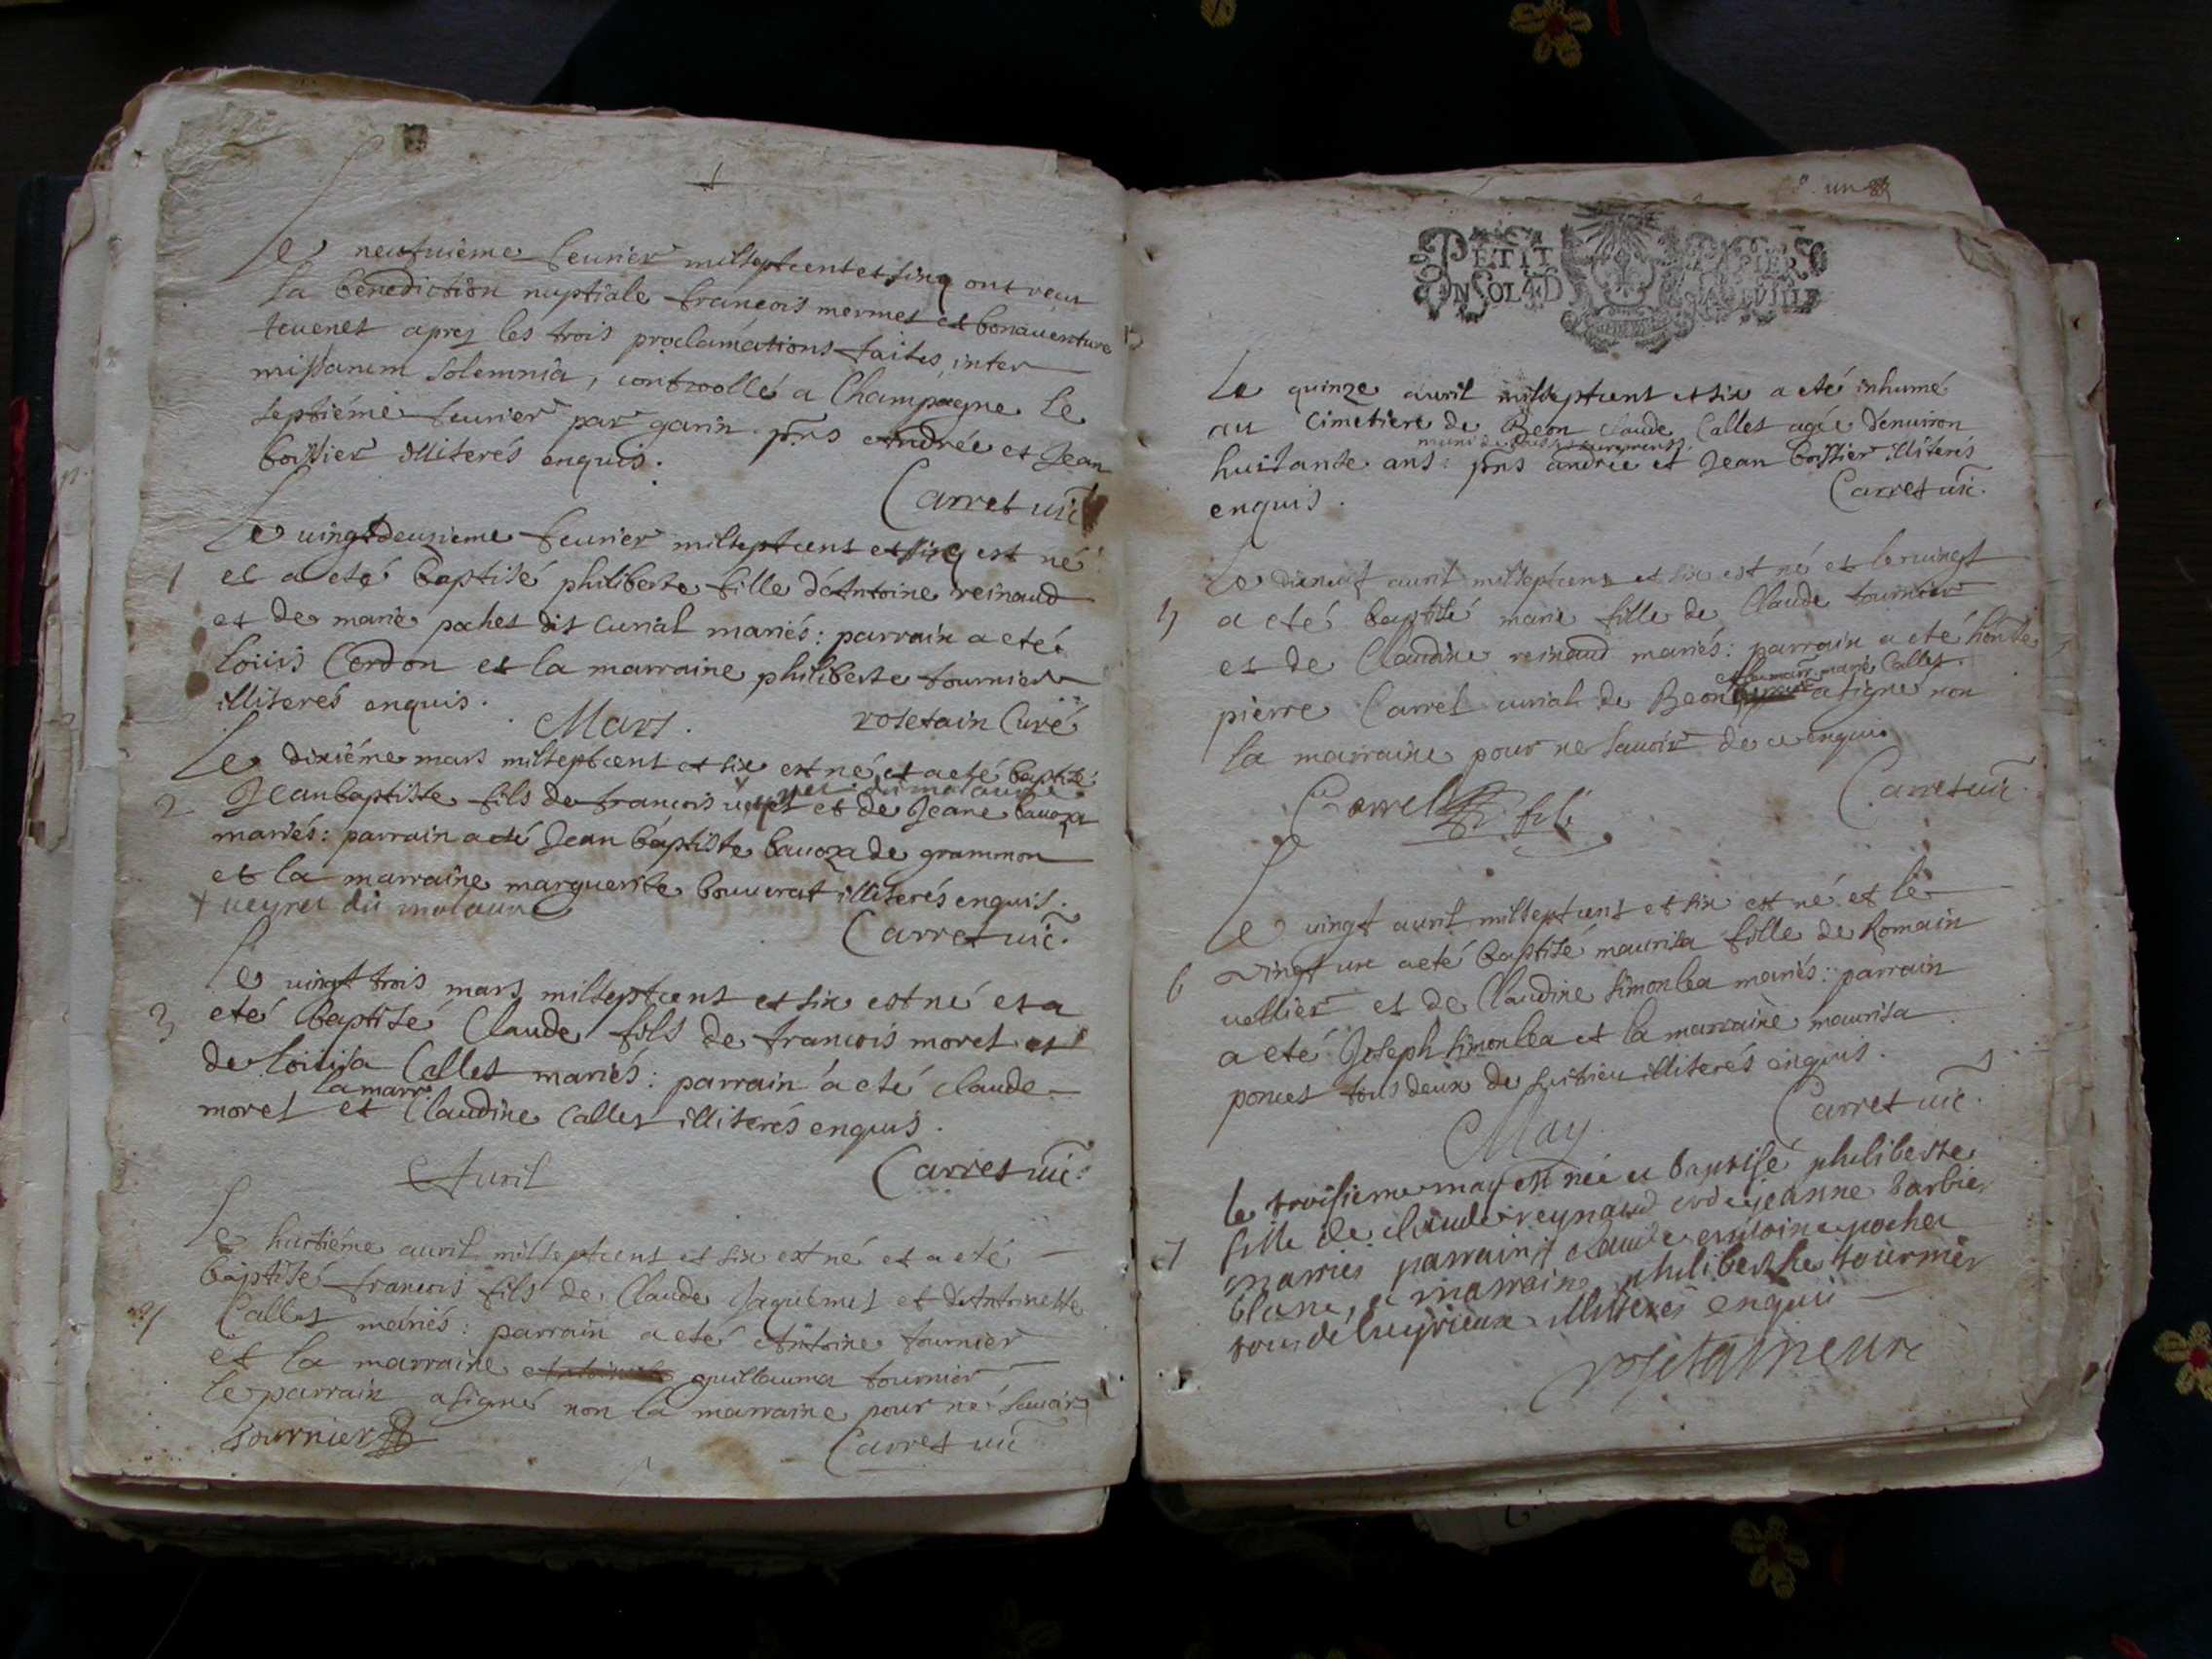 Le neufuiéme feurier milseptcent et sinq ont recu
la benediction nuptiale francois mermet et bonauenture
teuenet apres les trois proclamations faites, inter
missarum solemnia, controollé a Champagne le
septiéme feurier par garin pns Andrée et Jean
boissier illiterés enquis.
Carret uic
Le uingtdeuxieme feurier milseptcent et sinq est né
1 et a eté baptisé philiberte fille d'Antoine reinaud
et de marie pochet dit curial mariés: parrain a eté
Loüis Cerdon et la marraine philiberte tournier
illiterés enquis.
rosetain Curé
Mars.
Le dixiéme mars milseptcent et six est né et a eté baptisé
2 Jeanbaptiste fils de francois et de Jeane bauoza
mariés: parrain a eté Jean baptiste bauoza de grammon
et la marraine marguerite bouuerat illiterés enquis.
+ ueyret du molaure
Carret uic.
Le uingt trois mars milseptcent et six est né et a
3 eté baptisé Claude fils de francois moret et
de Loüisa Callet mariés: parrain a eté claude
la marr.
moret et Claudine Callet illiterés enquis.
Carret uic.
Auril
Le huitiéme auril milseptcent et six est né et a eté
baptisé francois fils de Claude Jaquemet et d'Antoinette
4 Callet mariés: parrain a eté Antoine tournier
et la marraine guillauma tournier
le parrain a signé non la marraine pour ne sauoir
tournier
Carret uic
PETIT PAPIER
UN SOL 4 D LA FEUILLE
Le quinze auril milseptcent et six a eté inhumé
au Cimetiere de Beon claude Callet agée denuiron
muni de sacrements
huitante ans: pns andrée et Jean boissier illiterés
enquis.
Carret uic.
Le dixneuf auril milseptcent et six est né et le uingt
5 a eté baptisé marie fille de Claude tournier
et de Claudine reinaud mariés: parrain a eté honble
et la marr marie Callet.
pierre Carrel curial de Beon a signé non
la marraine pour ne sauoir de ce enquis
Carrel
Carret uic.
Le uingt auril milseptcent et six est né et le
6 vingt un a eté baptisé maurisa fille de Romain
uellier et de Claudine simonlea mariés: parrain
a eté Joseph simonlea et la marraine maurisa
poncet tous deux de illiterés enquis.
Carret uic.
May
le troisieme may est née et baptisé philiberte
fille de claude reynaud et de jeanne barbier
7 marriés parrain claude antoine pochet
blanc, et marraine philiberthe tournier
tous de luyrieux illiterés enquis
rosetain curé